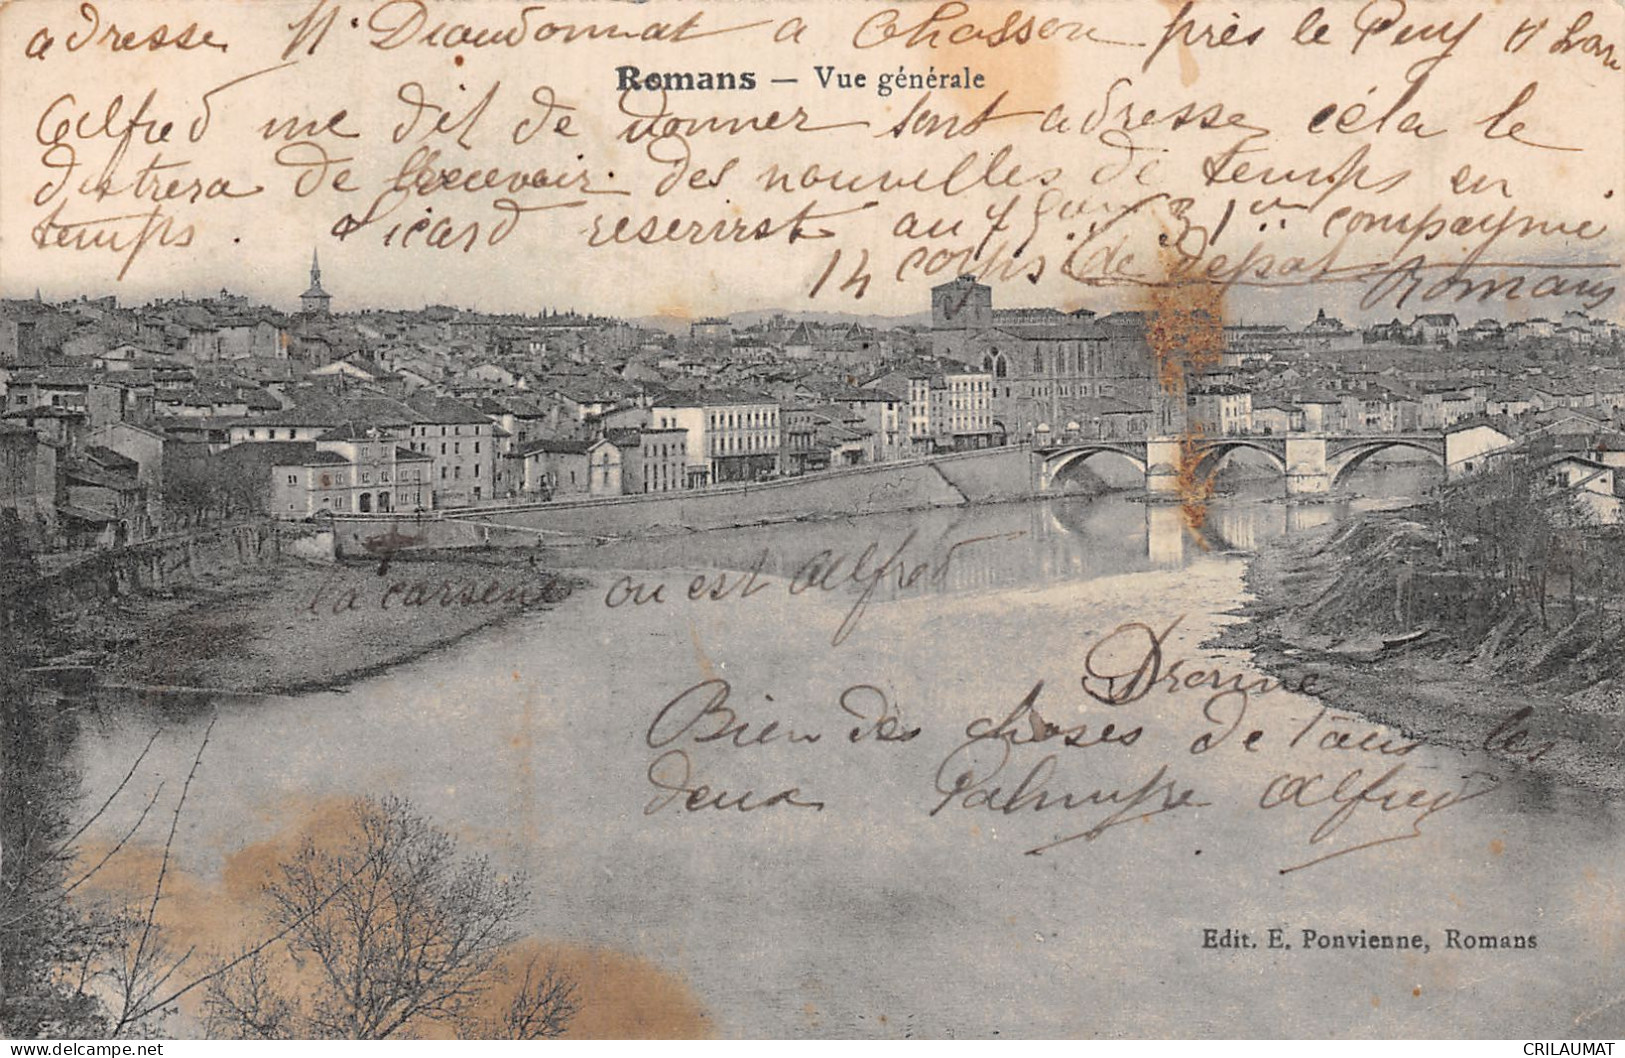 adresse M. Dieudonnat a Chosson près le Puy Hte Loire
Romans — Vue générale
Alfred me dit de donner sont adresse céla le
distrera de recevoir des nouvelles de temps en
temps. Sicard reserirste au 75eme 31eme compaynie
14 corps de depot Romans
la carserne ou est Alfred
Drome
Bien des choses de tous les
deux Palmyre Alfred
Edit. E. Ponvienne, Romans
CRILAUMAT